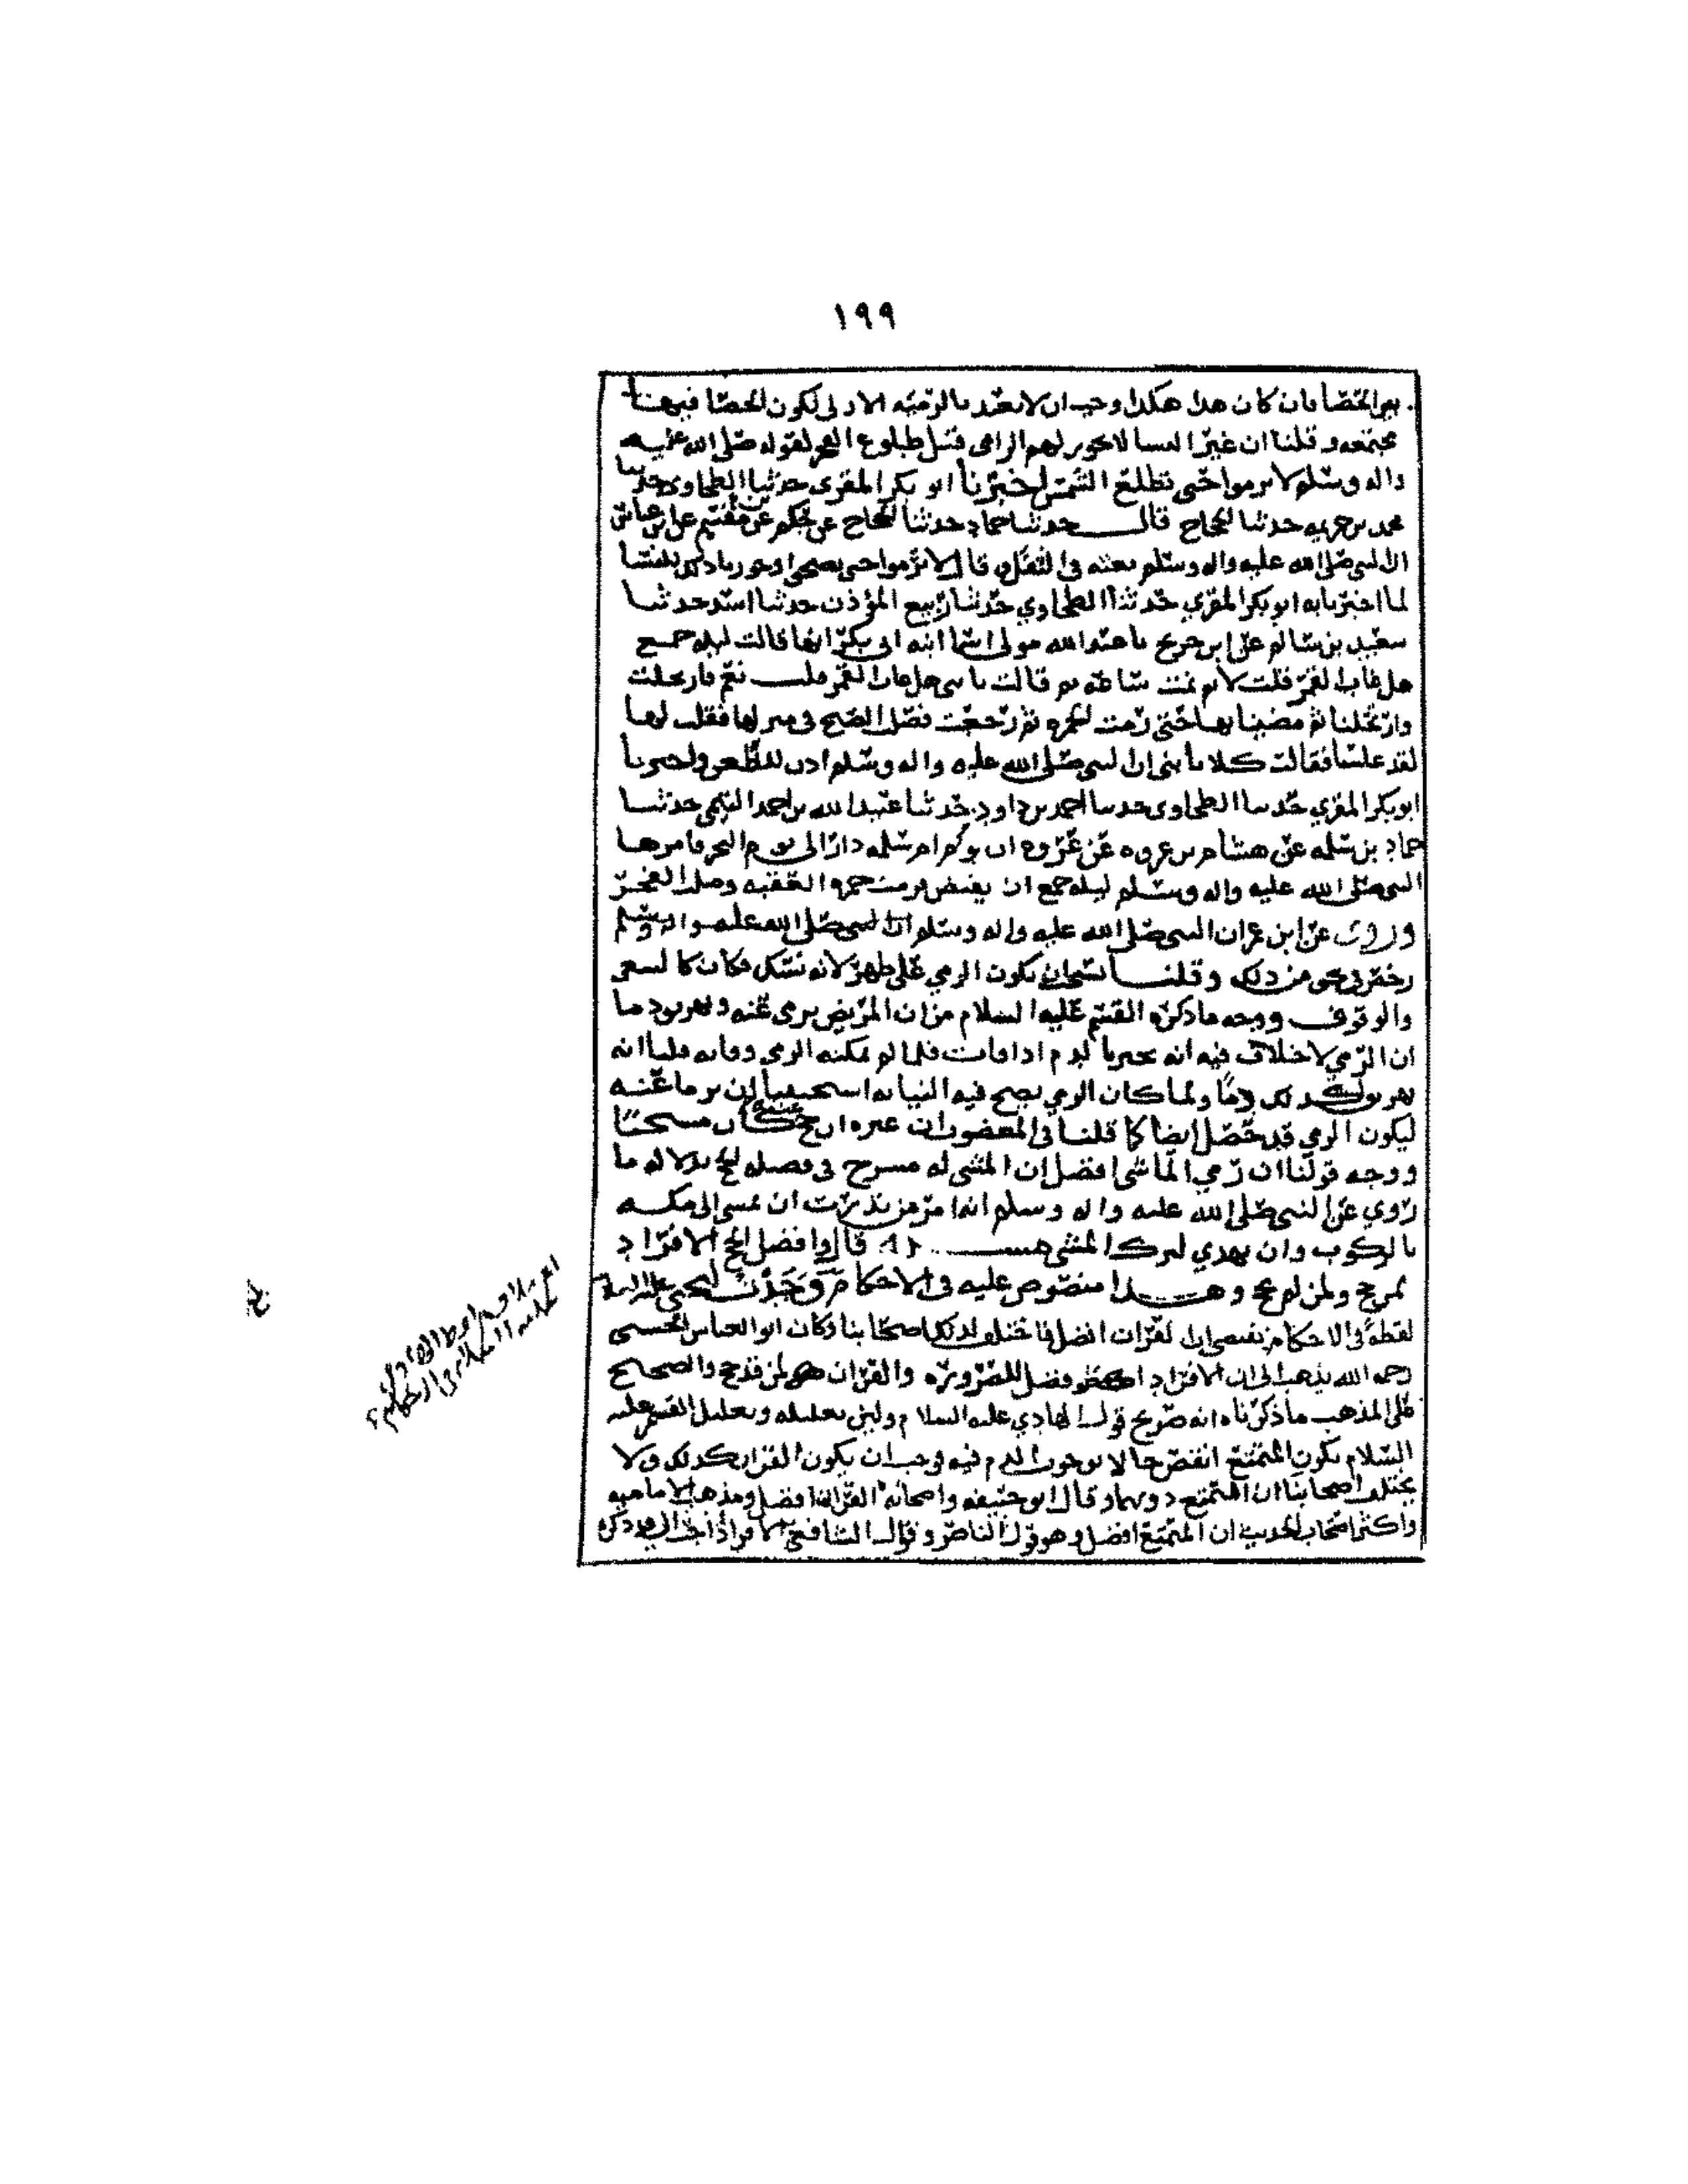 ١٩٩
بين الحصا فان كان هذا هكذا وجب ان لا يعتد بالرمية الاولى لكون الحصا فيها
مجتمعه وقلنا ان غير النسا لا يجوز لهم الرامي قبل طلوع الفجر لقوله صلى الله عليه
واله وسلم لا ترموا حتى تطلع الشمس اخبرنا ابو بكر المقري حدثنا الطحاوي حدثنا
محمد بن خزيمه حدثنا الحجاج قال حدثنا حماد حدثنا الحجاج عن الحكم عن مقسم عن ابن عباس
ان النبي صلى الله عليه واله وسلم بعثه في الثقل وقال لا ترموا حتى تصبحوا وجوزنا ذلك للنسا
لما اخبرنا به ابو بكر المقري حدثنا الطحاوي حدثنا ربيع المؤذن حدثنا اسد حدثنا
سعيد بن سالم عن ابن جريج نا عبد الله مولى اسما ابنه ابي بكر انها قالت ليله جمع
هل غاب القمر فقلت لا ثم نمت ساعه ثم قالت يا بني هل غاب القمر قلت نعم فارتحلت
وارتحلنا ثم مضينا بها حتى رمت الجمره ثم رجعت فصلت الصبح في منزلها فقلت لها
لقد غلسنا فقالت كلا يا بني ان النبي صلى الله عليه واله وسلم اذن للظعن واخبرنا
ابو بكر المقري حدثنا الطحاوي حدثنا احمد بن داود حدثنا عبيد الله بن احمد التيمي حدثنا
حماد بن سلمه عن هشام بن عروه عن عروه ان يوم ام سلمه دار الى يوم النحر فامرها
النبي صلى الله عليه واله وسلم ليله جمع ان يفيض فرمت جمره العقبه وصلت الفجر
وروى عن ابن عمر ان النبي صلى الله عليه واله وسلم ان النبي صلى الله عليه واله وسلم
رخص في نحو من ذلك وقلنا نستحب ان يكون الرمي على طهر لانه نسك فكان كالسعي
والوقوف ووجه ما ذكره القسم عليه السلام من ان المريض يرمى عنه ويهريق دما
ان الرمي لا خلاف فيه انه يجبر بالدم اذا فات فلما لم يمكنه الرمي وفاته قلنا انه
يهريق لذلك دما ولما كان الرمي يصح فيه النيابه استحببنا ان يرما عنه
ليكون الرمي قد حصل ايضا كما قلنا في المعضوب ان غيره ان حج عنه كان مستحبا
ووجه قولنا ان رمي الماشي افضل ان المشي له مسرح في فضيله الحج بدلاله ما
روي عن النبي صلى الله عليه واله وسلم انه امر من نذرت ان تمشي الى مكه
بالركوب وان تهدي لترك المشي قال وافضل الحج الافراد
لمن حج ولمن لم يحج وهذا منصوص عليه في الاحكام ليحيى عليه السلام
لفظة في الاحكام تقتضي ان القران افضل فاختلف لذلك اصحابنا وكان ابو العباس الحسني
رحمه الله يذهب الى ان الافراد افضل للضرورة والقران لمن قد حج والصحيح
على المذهب ما ذكرناه انه صريح قول الهادي عليه السلام ولان تعليله وتعليل القسم عليه
السلام بكون المتمتع انقص حالا بوجوب الدم فيه وجب ان يكون القران كذلك ولا
يختلف اصحابنا ان التمتع دونهما وقال ابو حنيفه واصحابه القران افضل ومذهب الاماميه
واكثر اصحاب الحديث ان التمتع افضل وهو قول الناصر وقول الشافعي الافراد